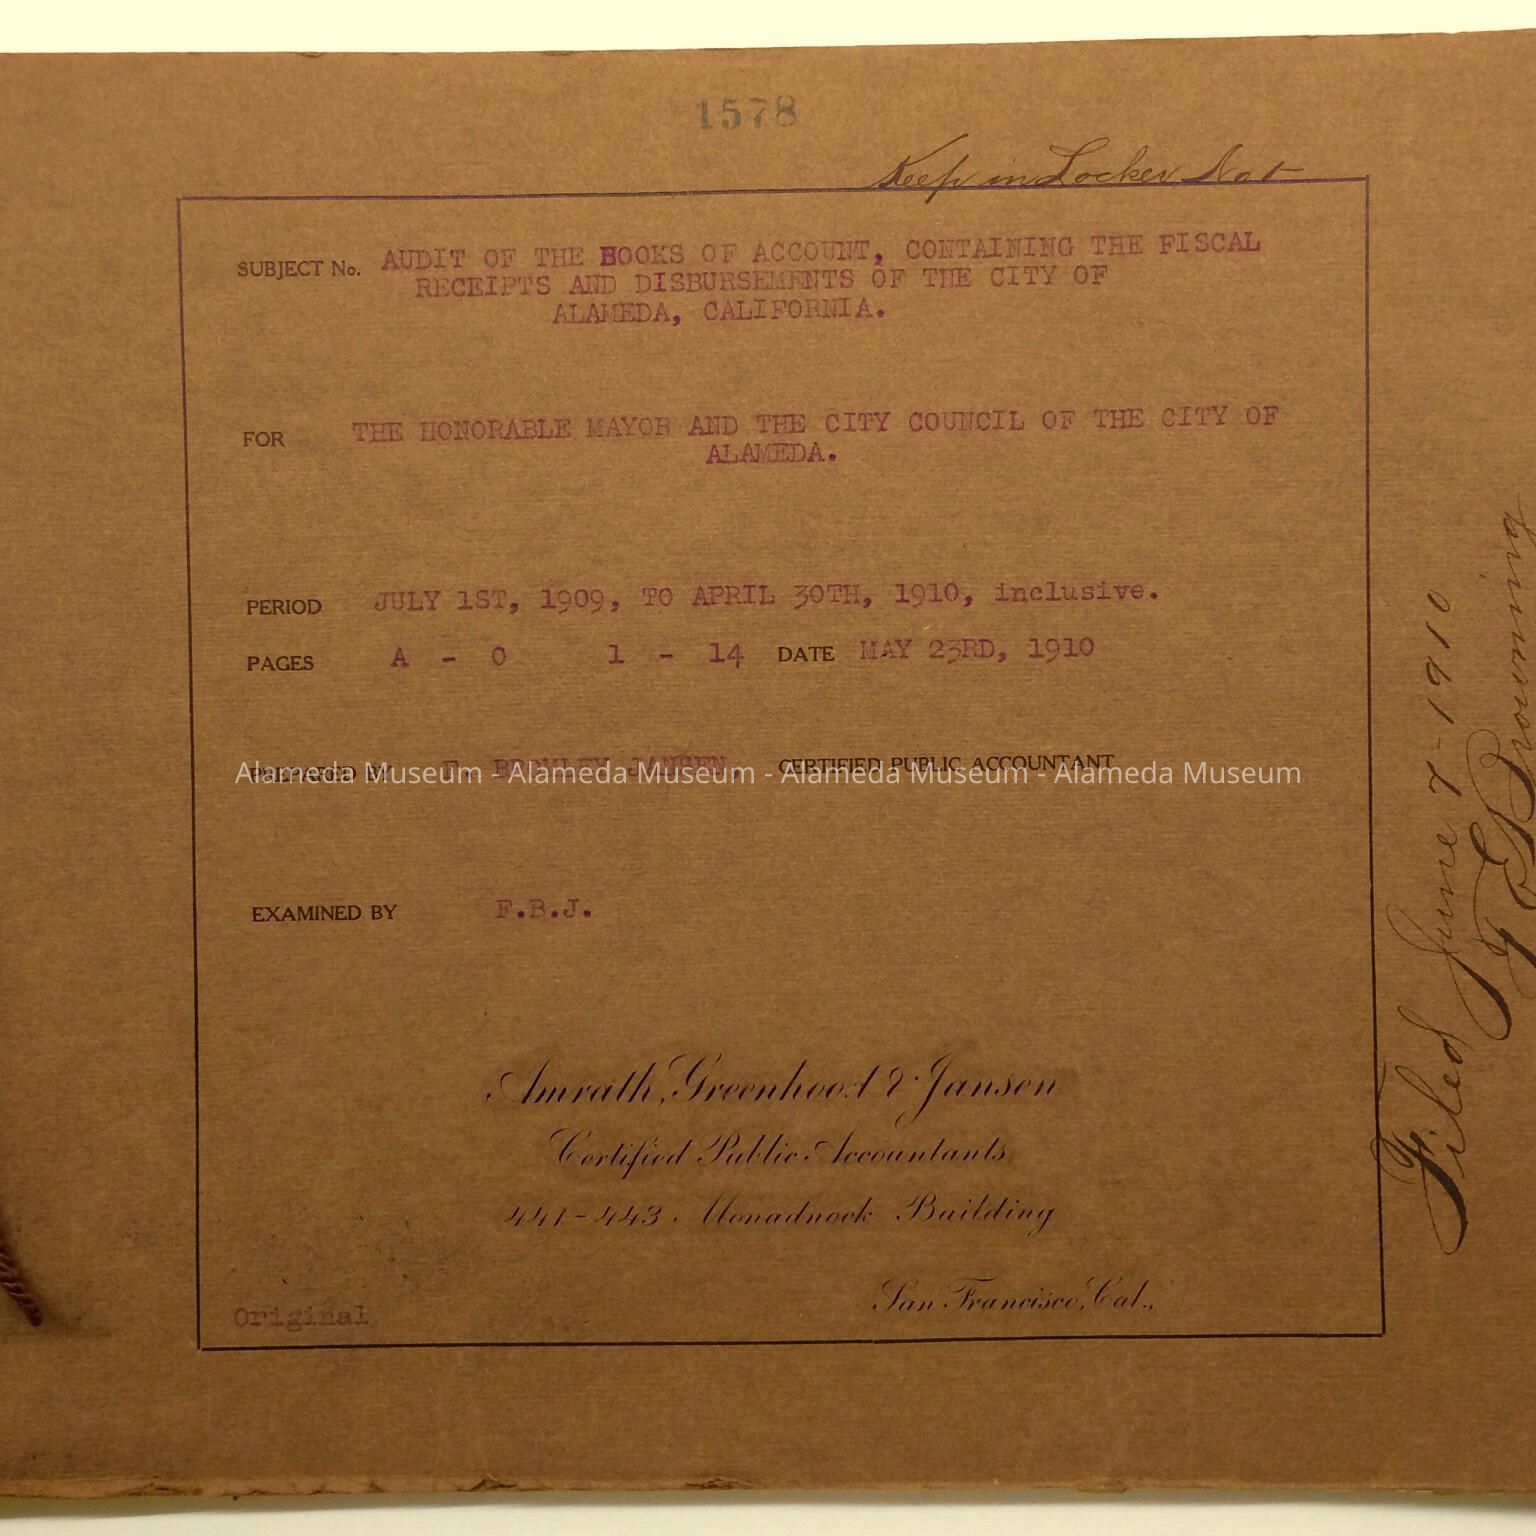 1578
Keep in Locker
SUBJECT No. AUDIT OF THE BOOKS OF ACCOUNT, CONTAINING THE FISCAL
RECEIPTS AND DISBURSEMENTS OF THE CITY OF
ALAMEDA, CALIFORNIA.
FOR THE HONORABLE MAYOR AND THE CITY COUNCIL OF THE CITY OF
ALAMEDA.
PERIOD JULY 1ST, 1909, TO APRIL 30TH, 1910, inclusive.
PAGES A - O 1 - 14 DATE MAY 23RD, 1910
PREPARED BY F. BROMLEY JANSEN, CERTIFIED PUBLIC ACCOUNTANT
Alameda Museum - Alameda Museum - Alameda Museum - Alameda Museum
EXAMINED BY F.B.J.
Amrath, Greenhood & Jansen
Certified Public Accountants
441-443. Monadnock Building
San Francisco, Cal.,
Original
Filed June 7-1910
Browning